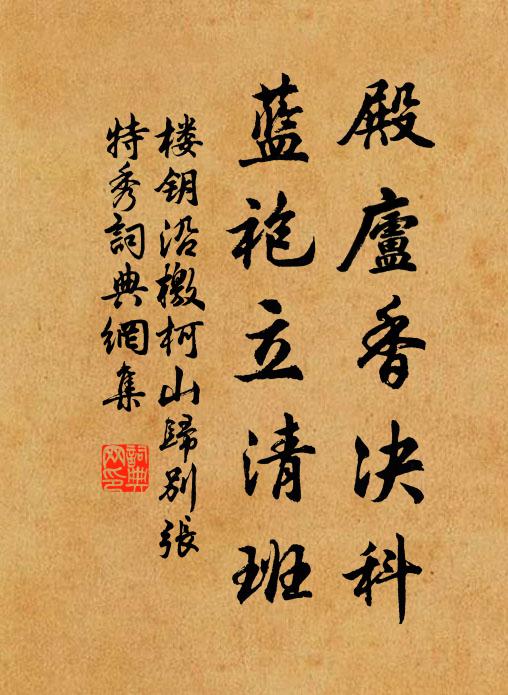 殿廬香决科
藍袍立清班
楼钥沿檄柯山歸别張
特秀詞典網集
詞典
网印